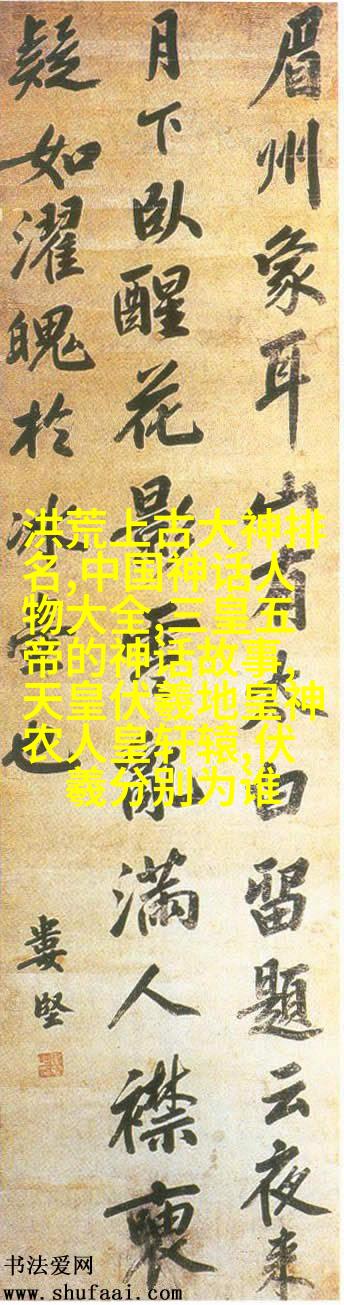 眉州象耳山有太白留題云夜来
月下臥醒花影零亂滿人襟
疑如濯魄於冰壺也
婁堅
洪荒上古大神排
名,中国神话人
物大全,三皇五
帝的神话故事,
天皇伏羲地皇神
农人皇轩辕,伏
羲分别为谁
书法爱网
www.shufaai.com